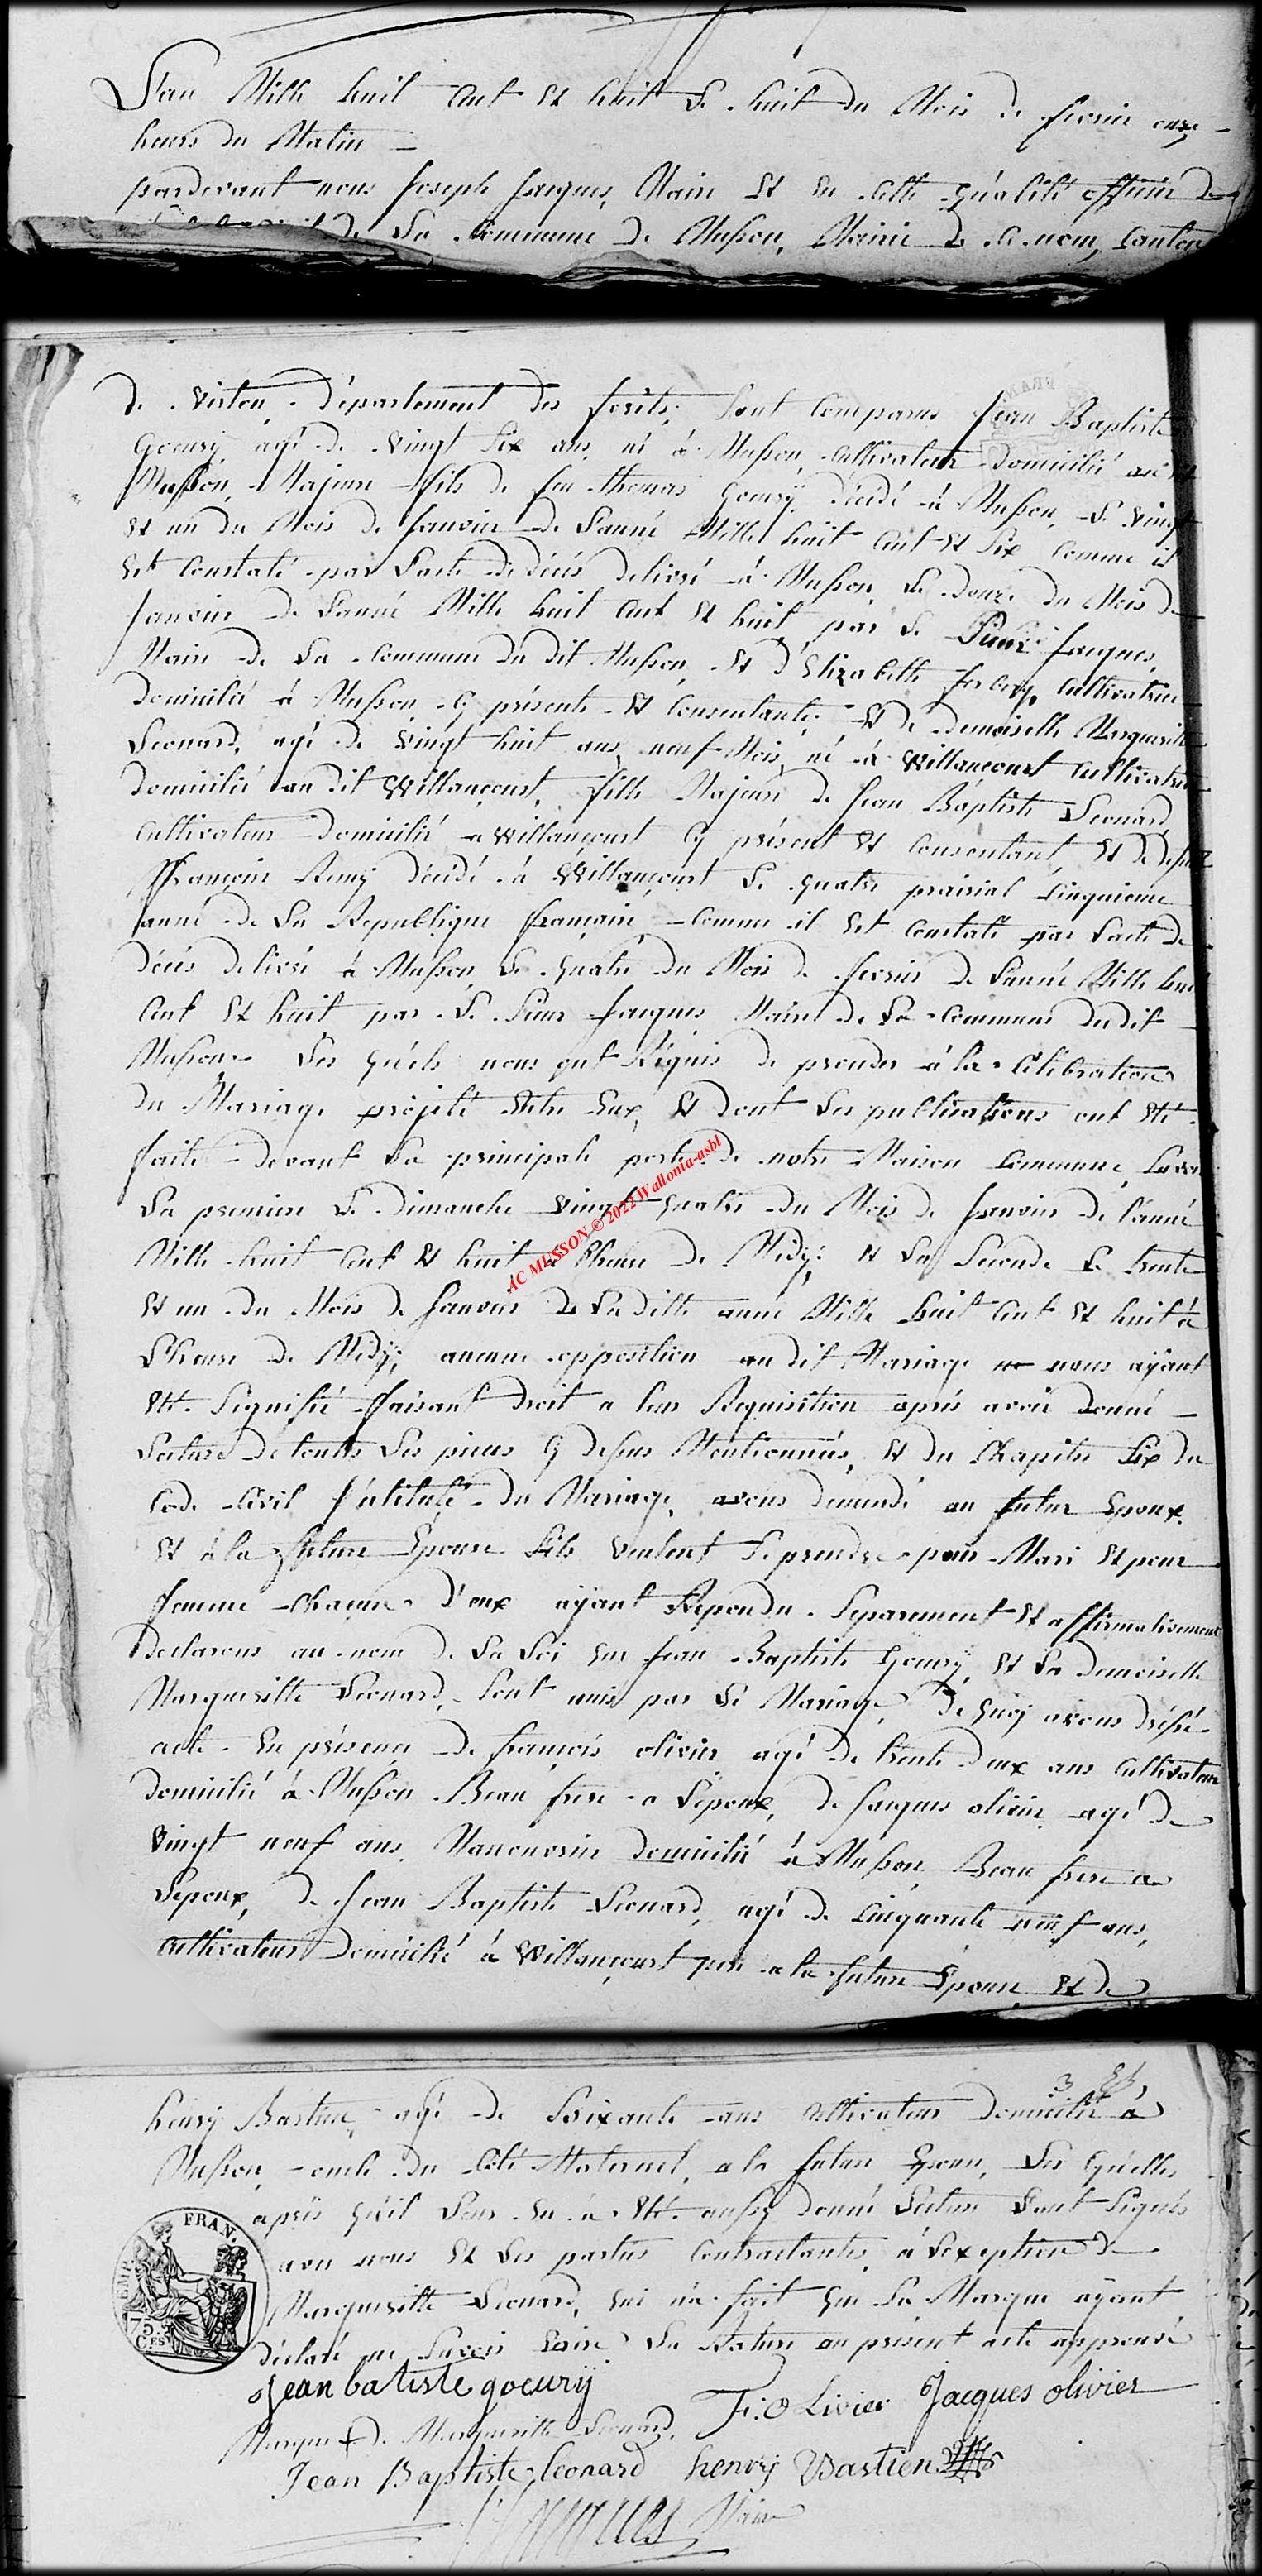 L'an Mille huit cent et huit le huit du Mois de fevrier onze
heurs du Matin
pardevant nous Joseph Jacques, Maire et en cette qualité officier de
de La Commune de Musson, Mairie de ce nom, canton
de Virton Département des forêts, Sont comparus Jean Baptiste
Goeury agé de vingt Six ans, né à Musson, cultivateur domicilié au dit
Musson, Majeur fils de feu thomas Goeury décédé à Musson le vingt
et un du Mois de Janvier de L'année Mille huit cent et Six comme il
est constaté par L'acte de décès delivré à Musson, Le douze du Mois de
Janvier de L'année Mille huit cent et huit, par le Sieur Jacques,
Maire de La Commune du dit Musson, et d'Elizabette cultivatrice
domiciliée à Musson cy présente et Consentante; et de demoiselle Margueritte
Leonard, agé de vingt huit ans neuf Mois, né à Willancourt Cultivatrice
domicilié au dit Willancourt, fille Majeure de Jean Baptiste Leonard
Cultivateur domicilié a Willancourt Cy présent et Consentant, et de defunte
Françoise Remy décédé à Willancourt le quatre prairial Cinquieme
année de La Republique française comme il est constaté par L'acte de
décès delivré à Musson Le quatre du Mois de fevrier de L'année Mille huit
Cent et huit par Le Sieur Jacques Maire de La Commune du dit
Musson. Les quels nous ont Réquis de proceder à la Célébration
du Mariage projeté entre Eux, et dont Les publications ont été
faite devant La principale porte de notre Maison Commune, Savoir
La premiere Le dimanche vingt quatre du Mois de Janvier de l'année
Mille huit cent et huit à L'heure de Midÿ; et La Seconde Le trente
et un du Mois de Janvier de La ditte année Mille huit cent et huit à
L'heure de Midÿ; aucune opposition au dit Mariage ne nous aÿant
été Signifié faisant droit a leur Requisition après avoir donné
Lecture de toutes Les pieces Cy dessus Mentionnées, et du Chapitre Six du
Code Civil Intitulé du Mariage, avons demandé au futur Epoux
et à la future Epouse S'ils veulent Se prendre pour Mari et pour
femme chacun d'eux aÿant Repondu Separement et affirmativement
declarons au nom de La Loi que Jean Baptiste Goeurÿ et La demoiselle
Margueritte Leonard, Sont unis par Le Mariage, de quoy avons dréssé
acte En présence de françois olivier agé de trente deux ans Cultivateur
domicilié à Musson Beau frere a L'epoux, de Jacques olivier agé de
vingt neuf ans Manouvrier domicilié à Musson Beau frere a
L'epoux, de Jean Baptiste Leonard, agé de Cinquante neuf ans,
Cultivateur domicilié à Willancourt pere a la future Epouse et de
henry Bastien, agé de Soixante ans Cultivateur domicilié à
Musson, oncle du Côté Maternel, a la future Epouse, Les quelles
après qu'il Leur en a été aussy donné Lecture L'ont Signés
avec nous et Les parties Contractantes, à L'exeption de
Margueritte Leonard, qui n'a fait que La Marque aÿant
déclaré ne Savoir Ecrire La Rature au présent acte approuvé
FRAN.
EMP.
75.
C.ES
Jean batiste goeurij
F: OLivier Jacques olivier
Marque + de Margueritte Leonard,
Jean Baptiste leonard henry Bastien
Jacques Maire
AC MUSSON © 2022 Wallonia-asbl